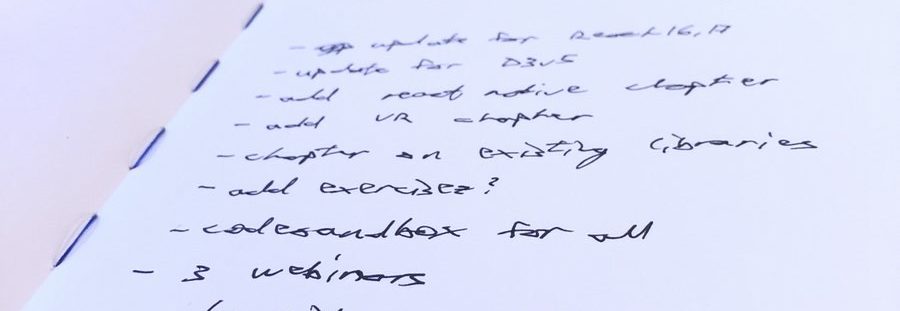 - update for React 16, 17
- update for D3v5
- add react native chapter
- add VR chapter
- chapter on existing libraries
- add exercises?
- codesandbox for all
- 3 webinars